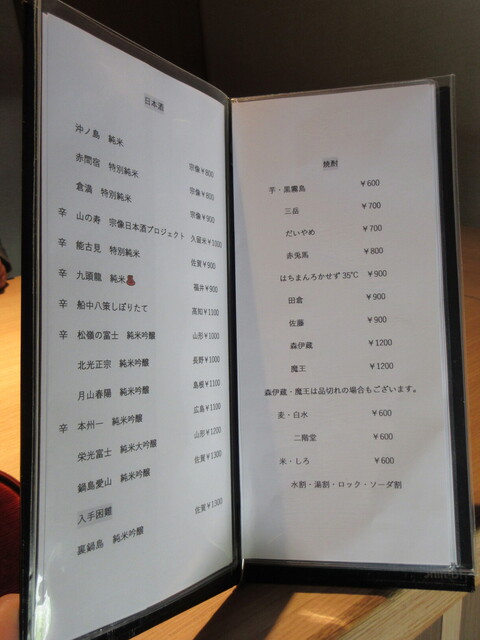 日本酒
沖ノ島 純米 宗像¥800
赤間宿 特別純米 宗像¥800
倉満 特別純米 宗像¥900
辛 山の寿 宗像日本酒プロジェクト 久留米¥1000
辛 能古見 特別純米 佐賀¥900
辛 九頭龍 純米 福井¥900
辛 船中八策しぼりたて 高知¥1100
辛 松嶺の富士 純米吟醸 山形¥1000
北光正宗 純米吟醸 長野¥1000
月山春陽 純米吟醸 島根¥1100
辛 本州一 純米吟醸 広島¥1100
栄光富士 純米大吟醸 山形¥1200
鍋島愛山 純米吟醸 佐賀¥1300
入手困難
裏鍋島 純米吟醸 佐賀¥1300
焼酎
芋・黒霧島 ¥600
三岳 ¥700
だいやめ ¥700
赤兎馬 ¥800
はちまんろかせず35℃ ¥900
田倉 ¥900
佐藤 ¥900
森伊蔵 ¥1200
魔王 ¥1200
森伊蔵・魔王は品切れの場合もございます。
麦・白水 ¥600
二階堂 ¥600
米・しろ ¥600
水割・湯割・ロック・ソーダ割